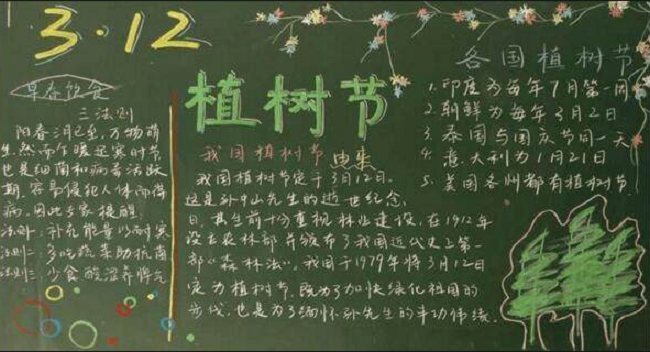 3·12
早春饮食
三法则
阳春三月已至,万物萌
生,然而乍暖还寒时节
也是细菌和病毒活跃
期,容易侵犯人体而得
病,因此专家提醒
法则一:补充能量少耐寒
法则二:多吃蔬菜助抗菌
法则三:少食酸温养脾气
植树节
我国植树节由来
我国植树节定于3月12日。
这是孙中山先生的逝世纪念
日,其生前十分重视林业建设,在1912年
设立农林部并颁布了我国近代史上第一
部“森林法”,我国于1979年将3月12日
定为植树节,既为了加快绿化祖国的
步伐,也是为了缅怀孙先生的丰功伟绩。
各国植树节
1.印度为每年7月第一周
2.朝鲜为每年3月2日
3.泰国与国庆节同一天
4.意大利为1月21日
5.美国各州都有植树节